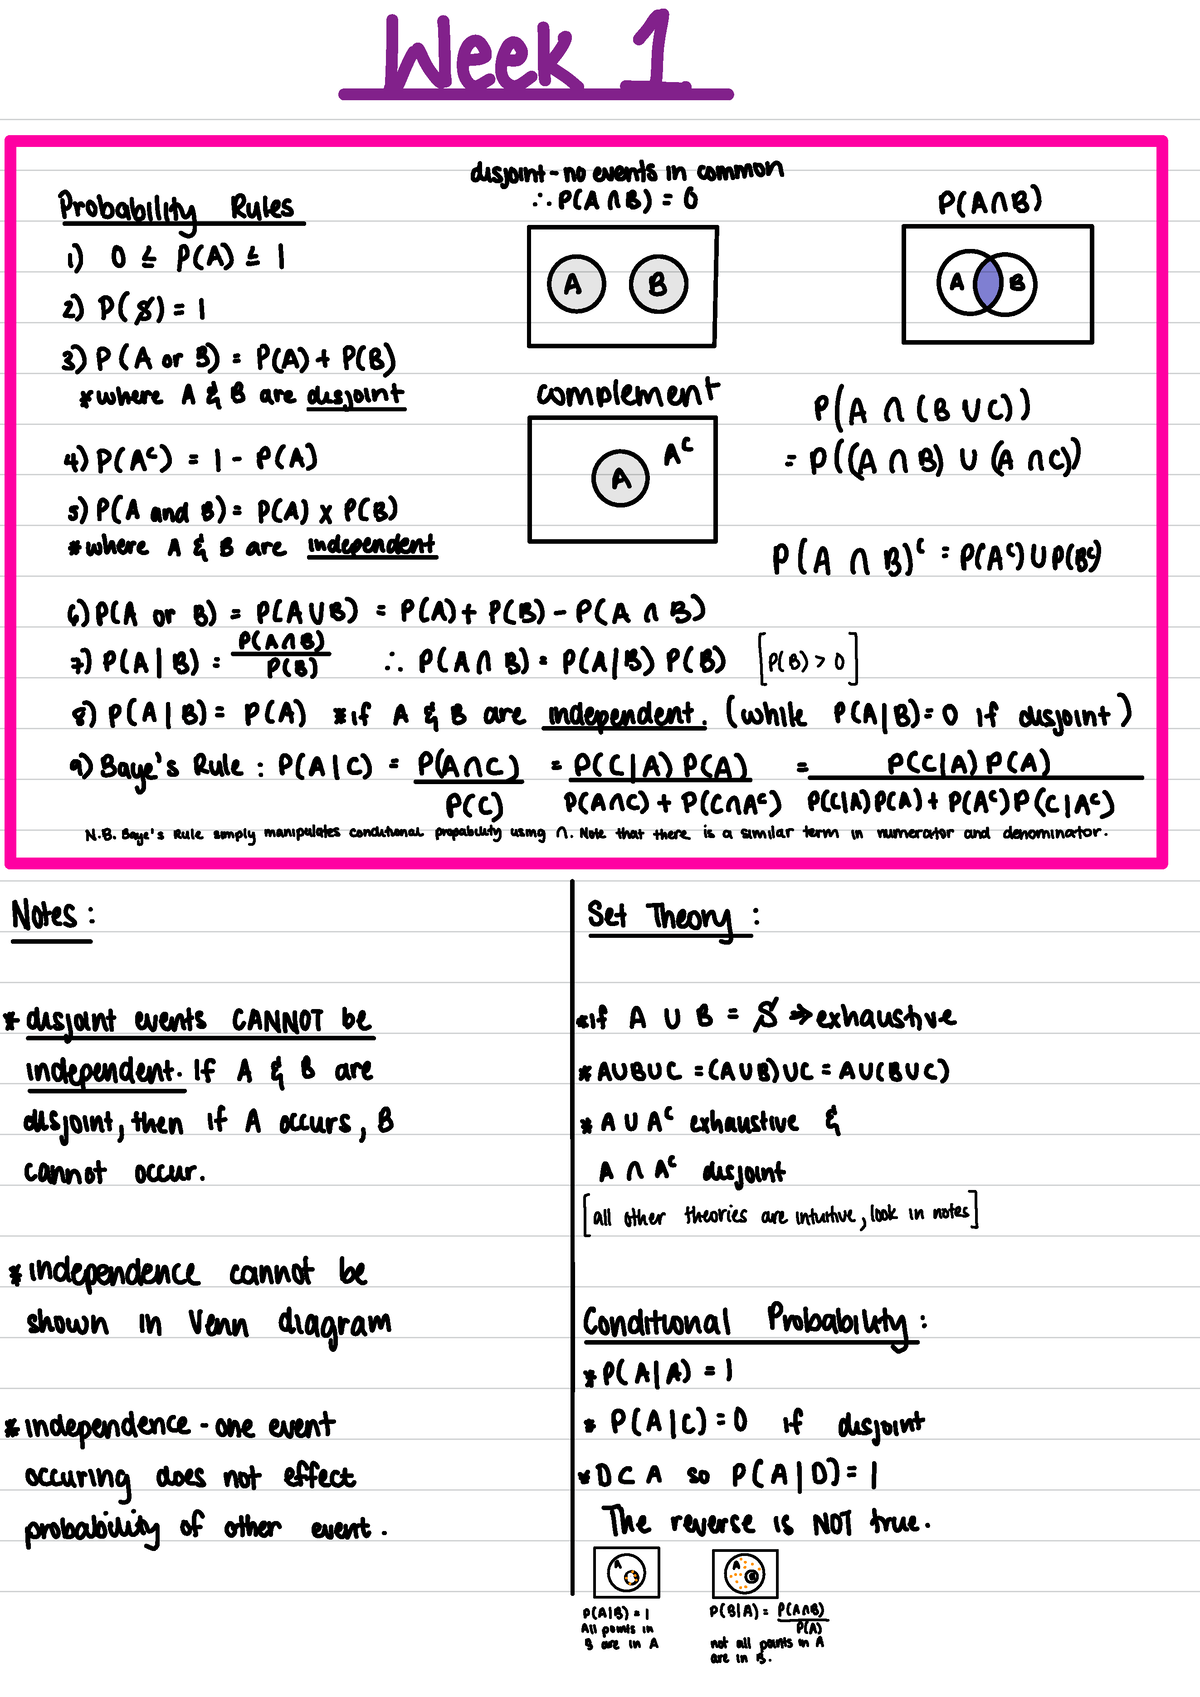 Week 1
Probability Rules
1) 0 ≤ P(A) ≤ 1
2) P($) = 1
3) P(A or B) = P(A) + P(B)
*where A & B are disjoint
4) P(Aᶜ) = 1 - P(A)
5) P(A and B) = P(A) x P(B)
*where A & B are independent
disjoint - no events in common
∴ P(A ∩ B) = 0
A B
complement
A Aᶜ
P(A∩B)
A B
P(A ∩ (B ∪ C))
= P((A ∩ B) ∪ (A ∩ C))
P(A ∩ B)ᶜ = P(Aᶜ) ∪ P(Bᶜ)
6) P(A or B) = P(A∪B) = P(A) + P(B) - P(A ∩ B)
7) P(A|B) = P(A∩B)/P(B) ∴ P(A∩B) = P(A|B) P(B) [P(B) > 0]
8) P(A|B) = P(A) *if A & B are independent. (while P(A|B) = 0 if disjoint)
9) Baye's Rule : P(A|C) = P(A∩C)/P(C) = P(C|A) P(A)/P(A∩C) + P(C∩Aᶜ) = P(C|A) P(A)/P(C|A)P(A) + P(Aᶜ)P(C|Aᶜ)
N.B. Baye's Rule simply manipulates conditional propability using ∩. Note that there is a similar term in numerator and denominator.
Notes :
* disjoint events CANNOT be
independent. If A & B are
disjoint, then if A occurs, B
cannot occur.
* independence cannot be
shown in Venn diagram
* independence - one event
occuring does not effect
probability of other event.
Set Theory :
*if A ∪ B = $ → exhaustive
* A∪B∪C = (A∪B)∪C = A∪(B∪C)
* A ∪ Aᶜ exhaustive &
A ∩ Aᶜ disjoint
[all other theories are intuitive, look in notes]
Conditional Probability :
* P(A|A) = 1
* P(A|C) = 0 if disjoint
* D ⊂ A so P(A|D) = 1
The reverse is NOT true.
A
P(A|B) = 1
All points in
B are in A
A
P(B|A) = P(A∩B)/P(A)
not all points in A
are in B.